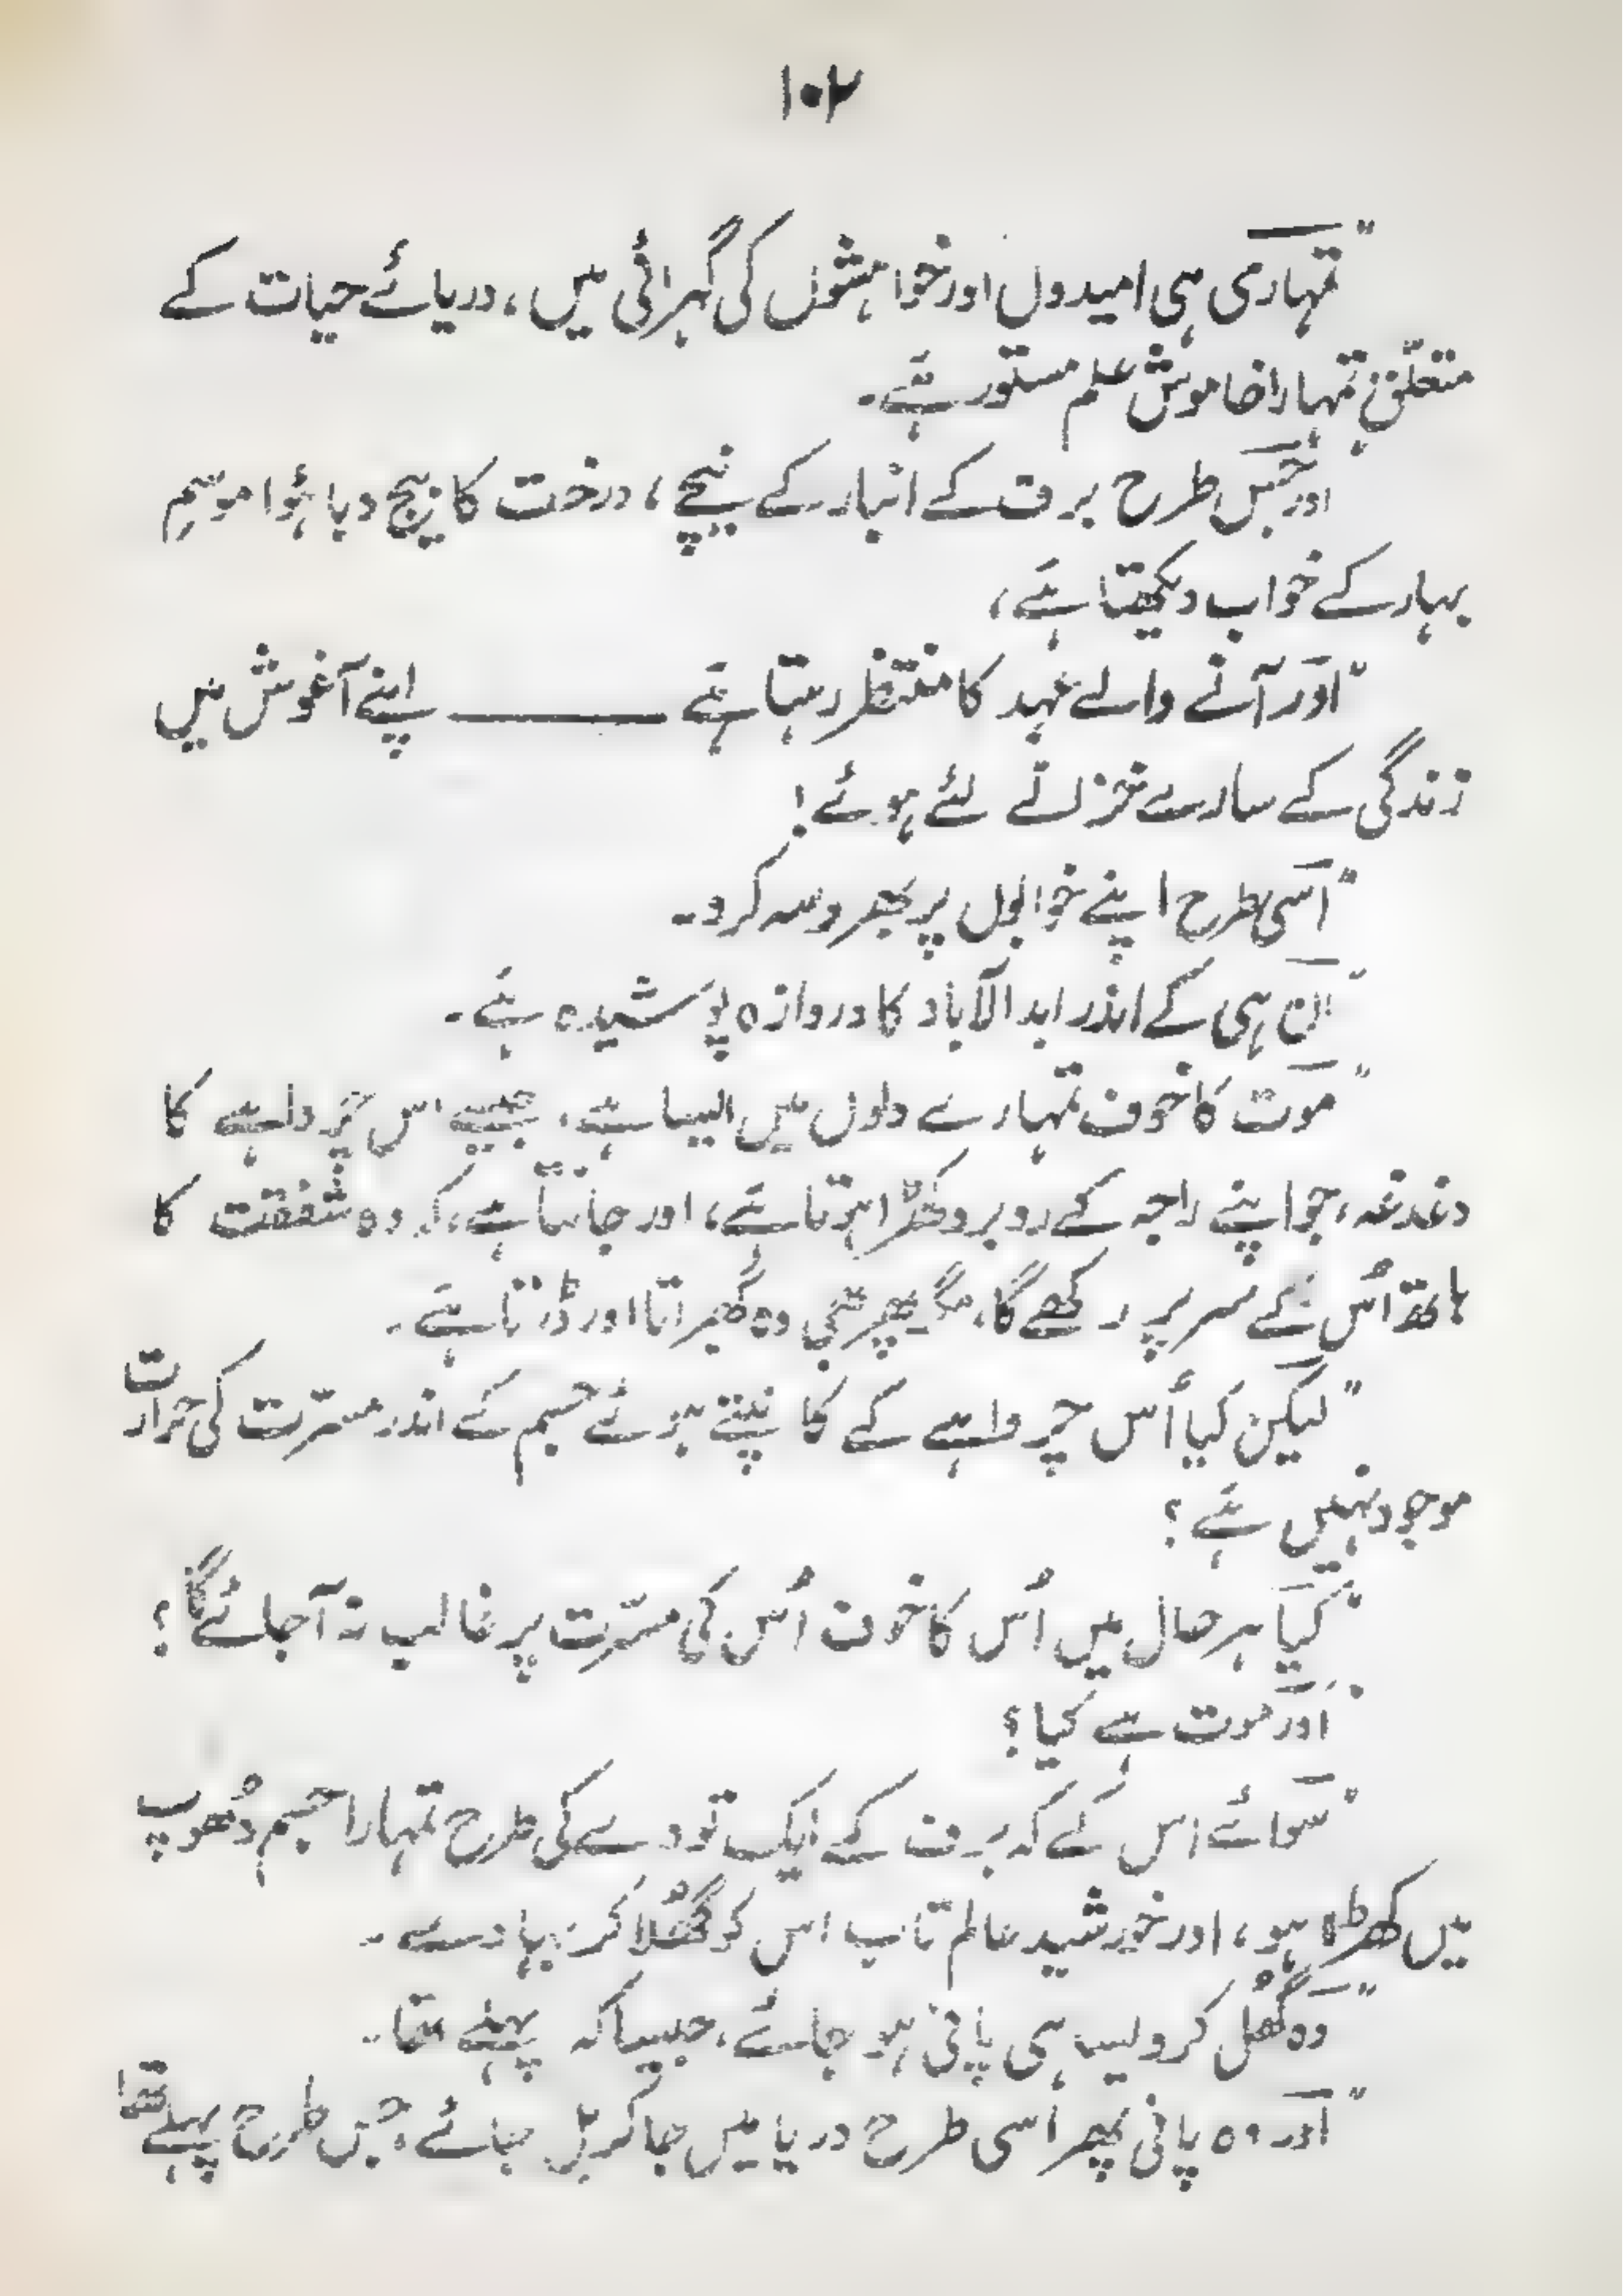 ۱۰۲
"تمہاری ہی امیدوں اور خواہشوں کی گہرائی میں، دریائے حیات کے
متعلّق تمہارا خاموش علم مستور ہے۔
"اور جس طرح برف کے انبار کے نیچے، درخت کا بیج دبا ہُوا موسمِ
بہار کے خواب دیکھتا ہے،
"اور آنے والے عہد کا منتظر رہتا ہے ——— اپنے آغوش میں
زندگی کے سارے خزانے لئے ہوئے!
"اسی طرح اپنے خوابوں پر بھروسہ کرو۔
"ان ہی کے اندر ابد الآباد کا دروازہ پوشیدہ ہے۔
"موت کا خوف تمہارے دلوں میں ایسا ہے، جیسے اس چرواہے کا
دغدغہ، جو اپنے راجہ کے روبرو کھڑا ہوتا ہے، اور جانتا ہے، کہ وہ شفقت کا
ہاتھ اُس کے سر پر رکھے گا، مگر پھر بھی وہ گھبراتا اور ڈرتا ہے۔
"لیکن کیا اُس چرواہے کے کانپتے ہوئے جسم کے اندر مسرّت کی حرارت
موجود نہیں ہے؟
"کیا ہر حال میں اُس کا خوف اُس کی مسرّت پر غالب نہ آ جائے گا؟
"اور موت ہے کیا؟
"سوائے اس کے کہ برف کے ایک تودے کی طرح تمہارا جسم دُھوپ
میں کھڑا ہو، اور خورشید عالم تاب اس کو گھُلا کر بہا دے۔
"وہ گھُل کر ویسا ہی پانی ہو جائے، جیسا کہ پہلے تھا۔
"اور وہ پانی پھر اسی طرح دریا میں جا کر مل جائے، جس طرح پہلے تھا